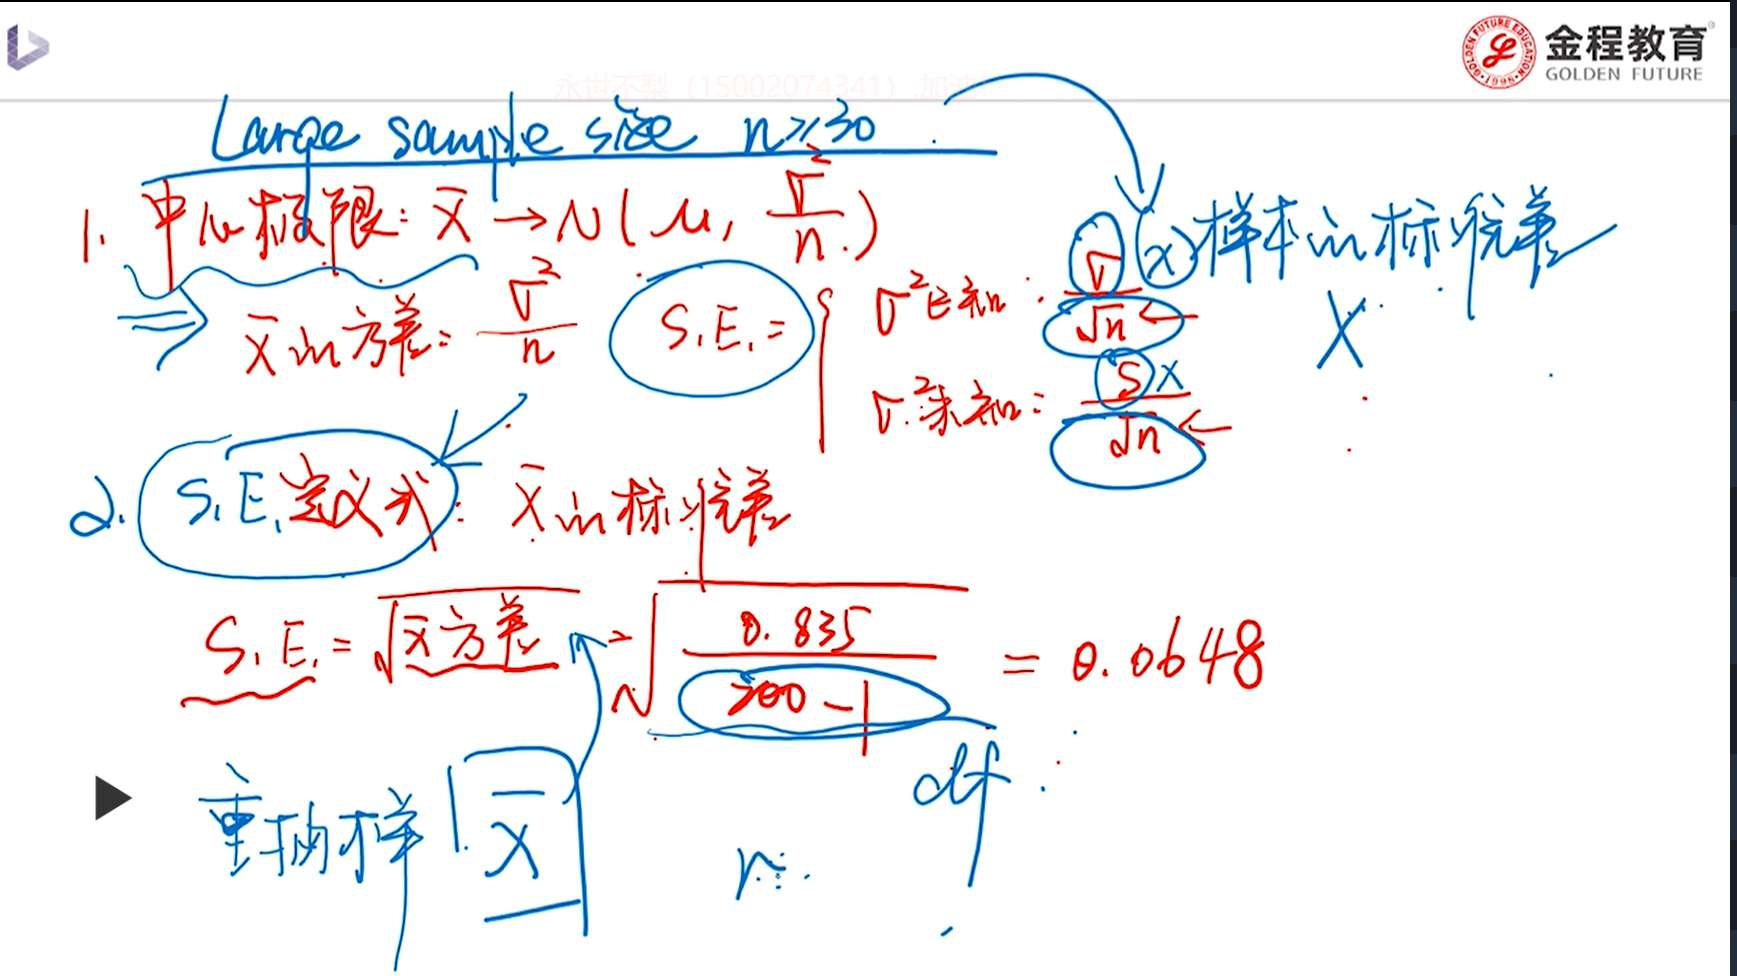 金程教育
GOLDEN FUTURE
永世不梨（15002074341）.加油
Large sample size n≥30
1. 中心极限: x̄ → N(μ, σ²/n)
x̄的方差: σ²/n
S.E. = { σ²已知: σ/√n
σ²未知: s/√n
x 样本的标准差
x
X
2. S.E.定义式: x̄的标准差
S.E. = √x̄方差 = √(0.835/(200-1)) = 0.0648
df
重抽样 x̄
n